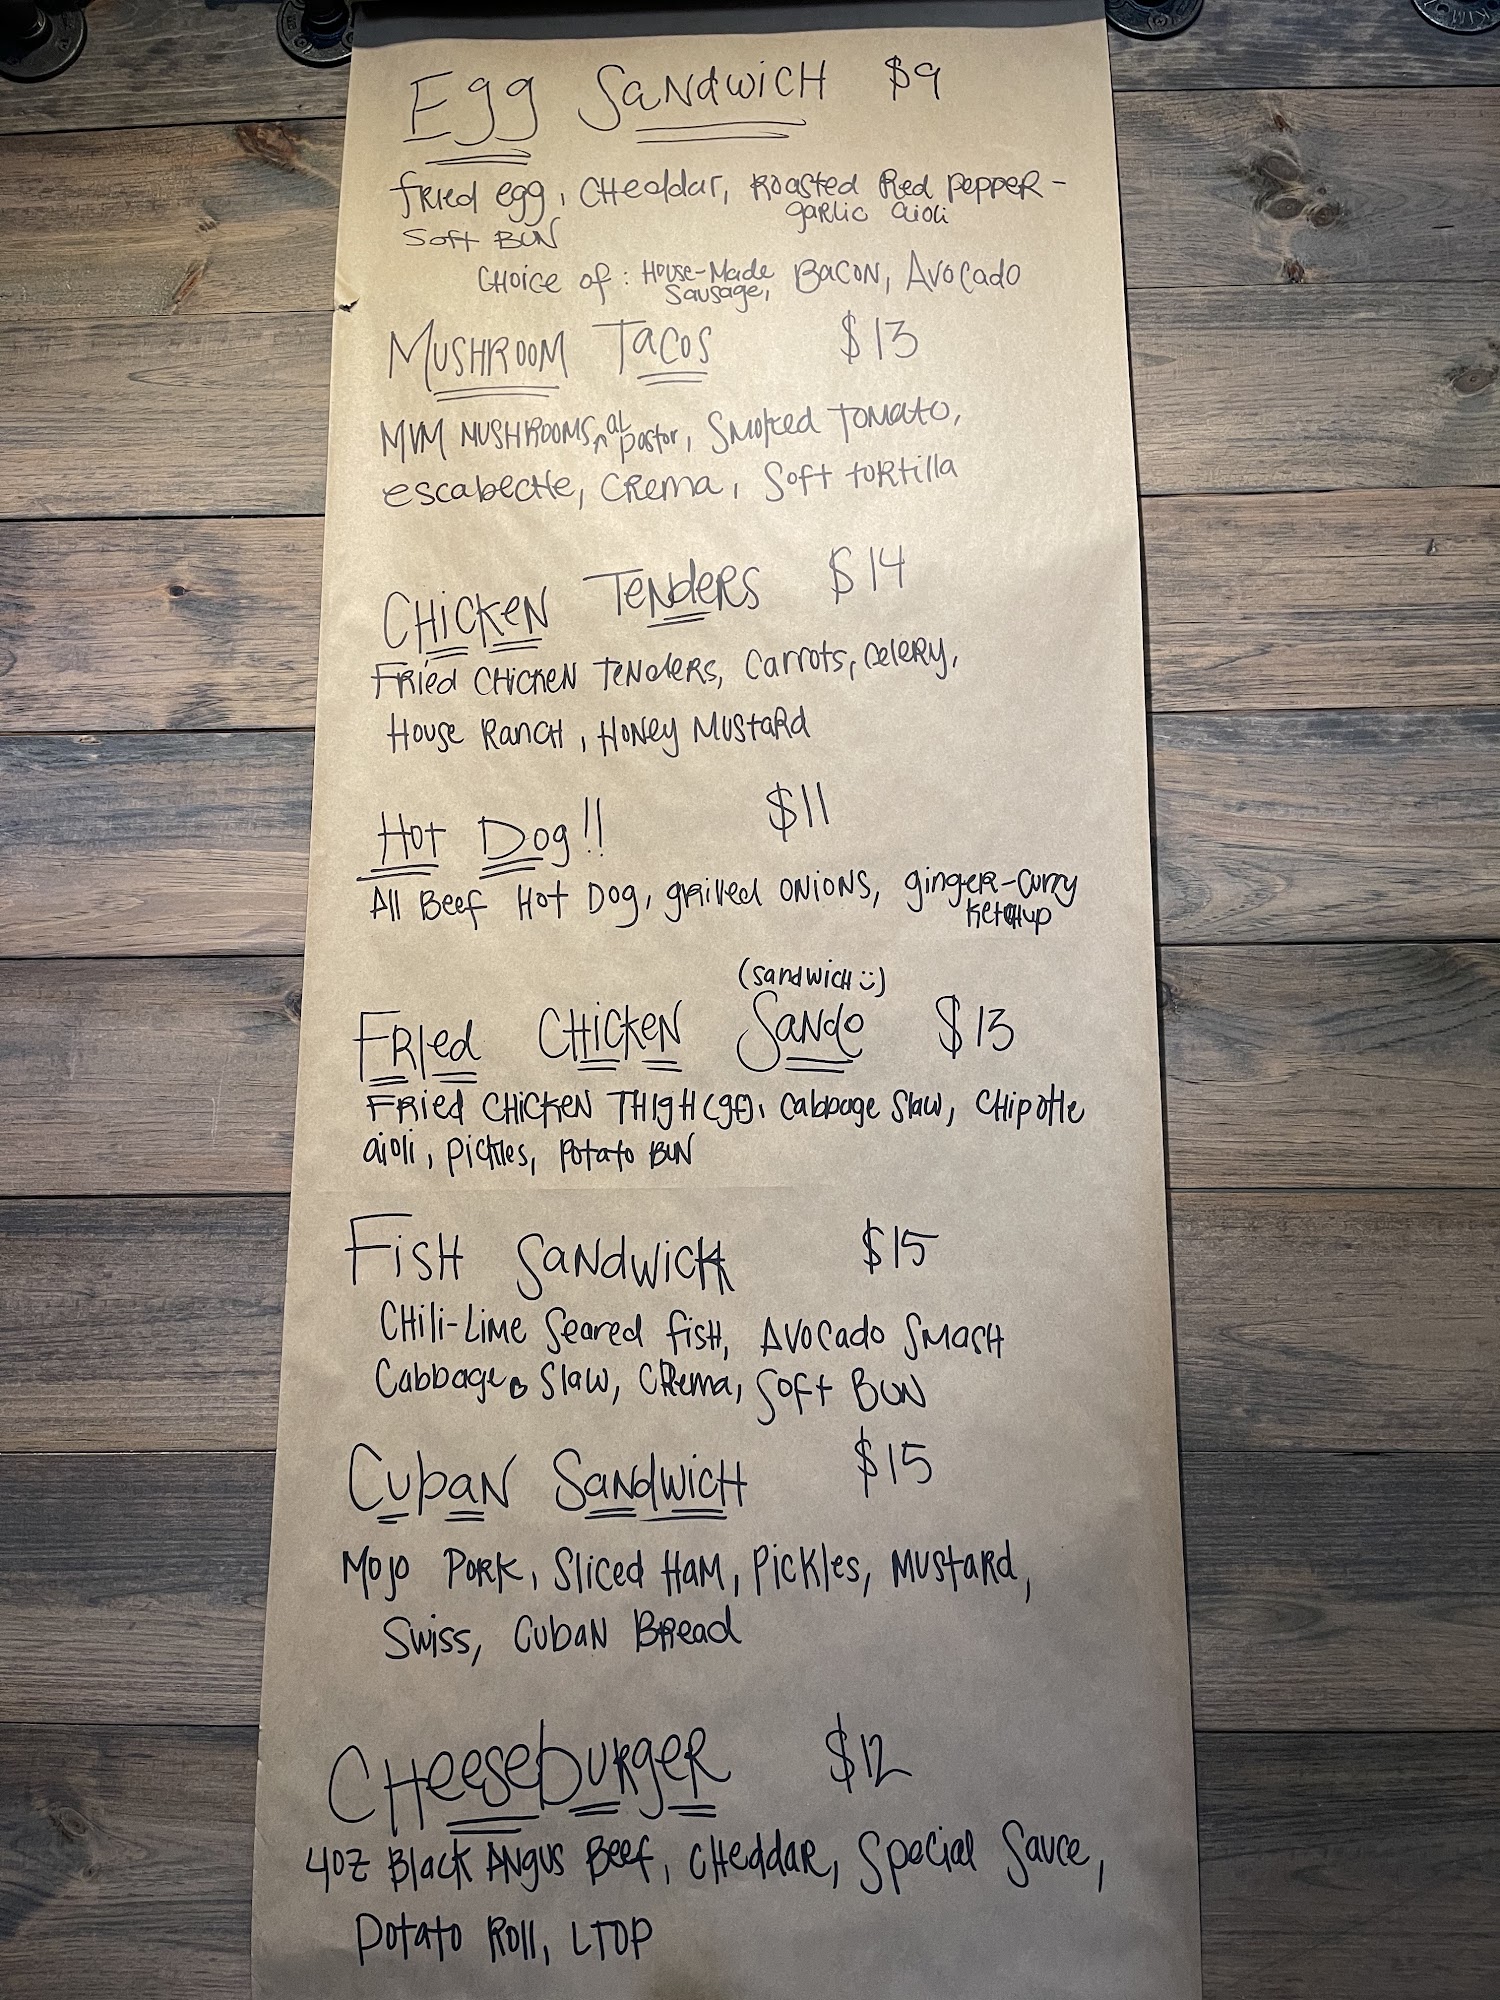 Egg Sandwich $9
fried egg, cheddar, roasted red pepper-
garlic aioli
soft bun
choice of: house-made sausage, Bacon, Avocado
Mushroom Tacos $13
MVM mushrooms, al pastor, smoked tomato,
escabeche, crema, soft tortilla
Chicken Tenders $14
Fried chicken tenders, carrots, celery,
House Ranch, Honey Mustard
Hot Dog!! $11
All Beef Hot Dog, grilled onions, ginger-curry
ketchup
(sandwich :))
Fried Chicken Sando $13
Fried chicken thigh (gf), cabbage slaw, chipotle
aioli, pickles, potato bun
Fish Sandwich $15
Chili-Lime seared fish, Avocado smash
Cabbage slaw, crema, soft bun
Cuban Sandwich $15
Mojo Pork, sliced ham, pickles, mustard,
Swiss, Cuban Bread
Cheeseburger $12
4oz Black Angus Beef, cheddar, special sauce,
potato roll, LTOP